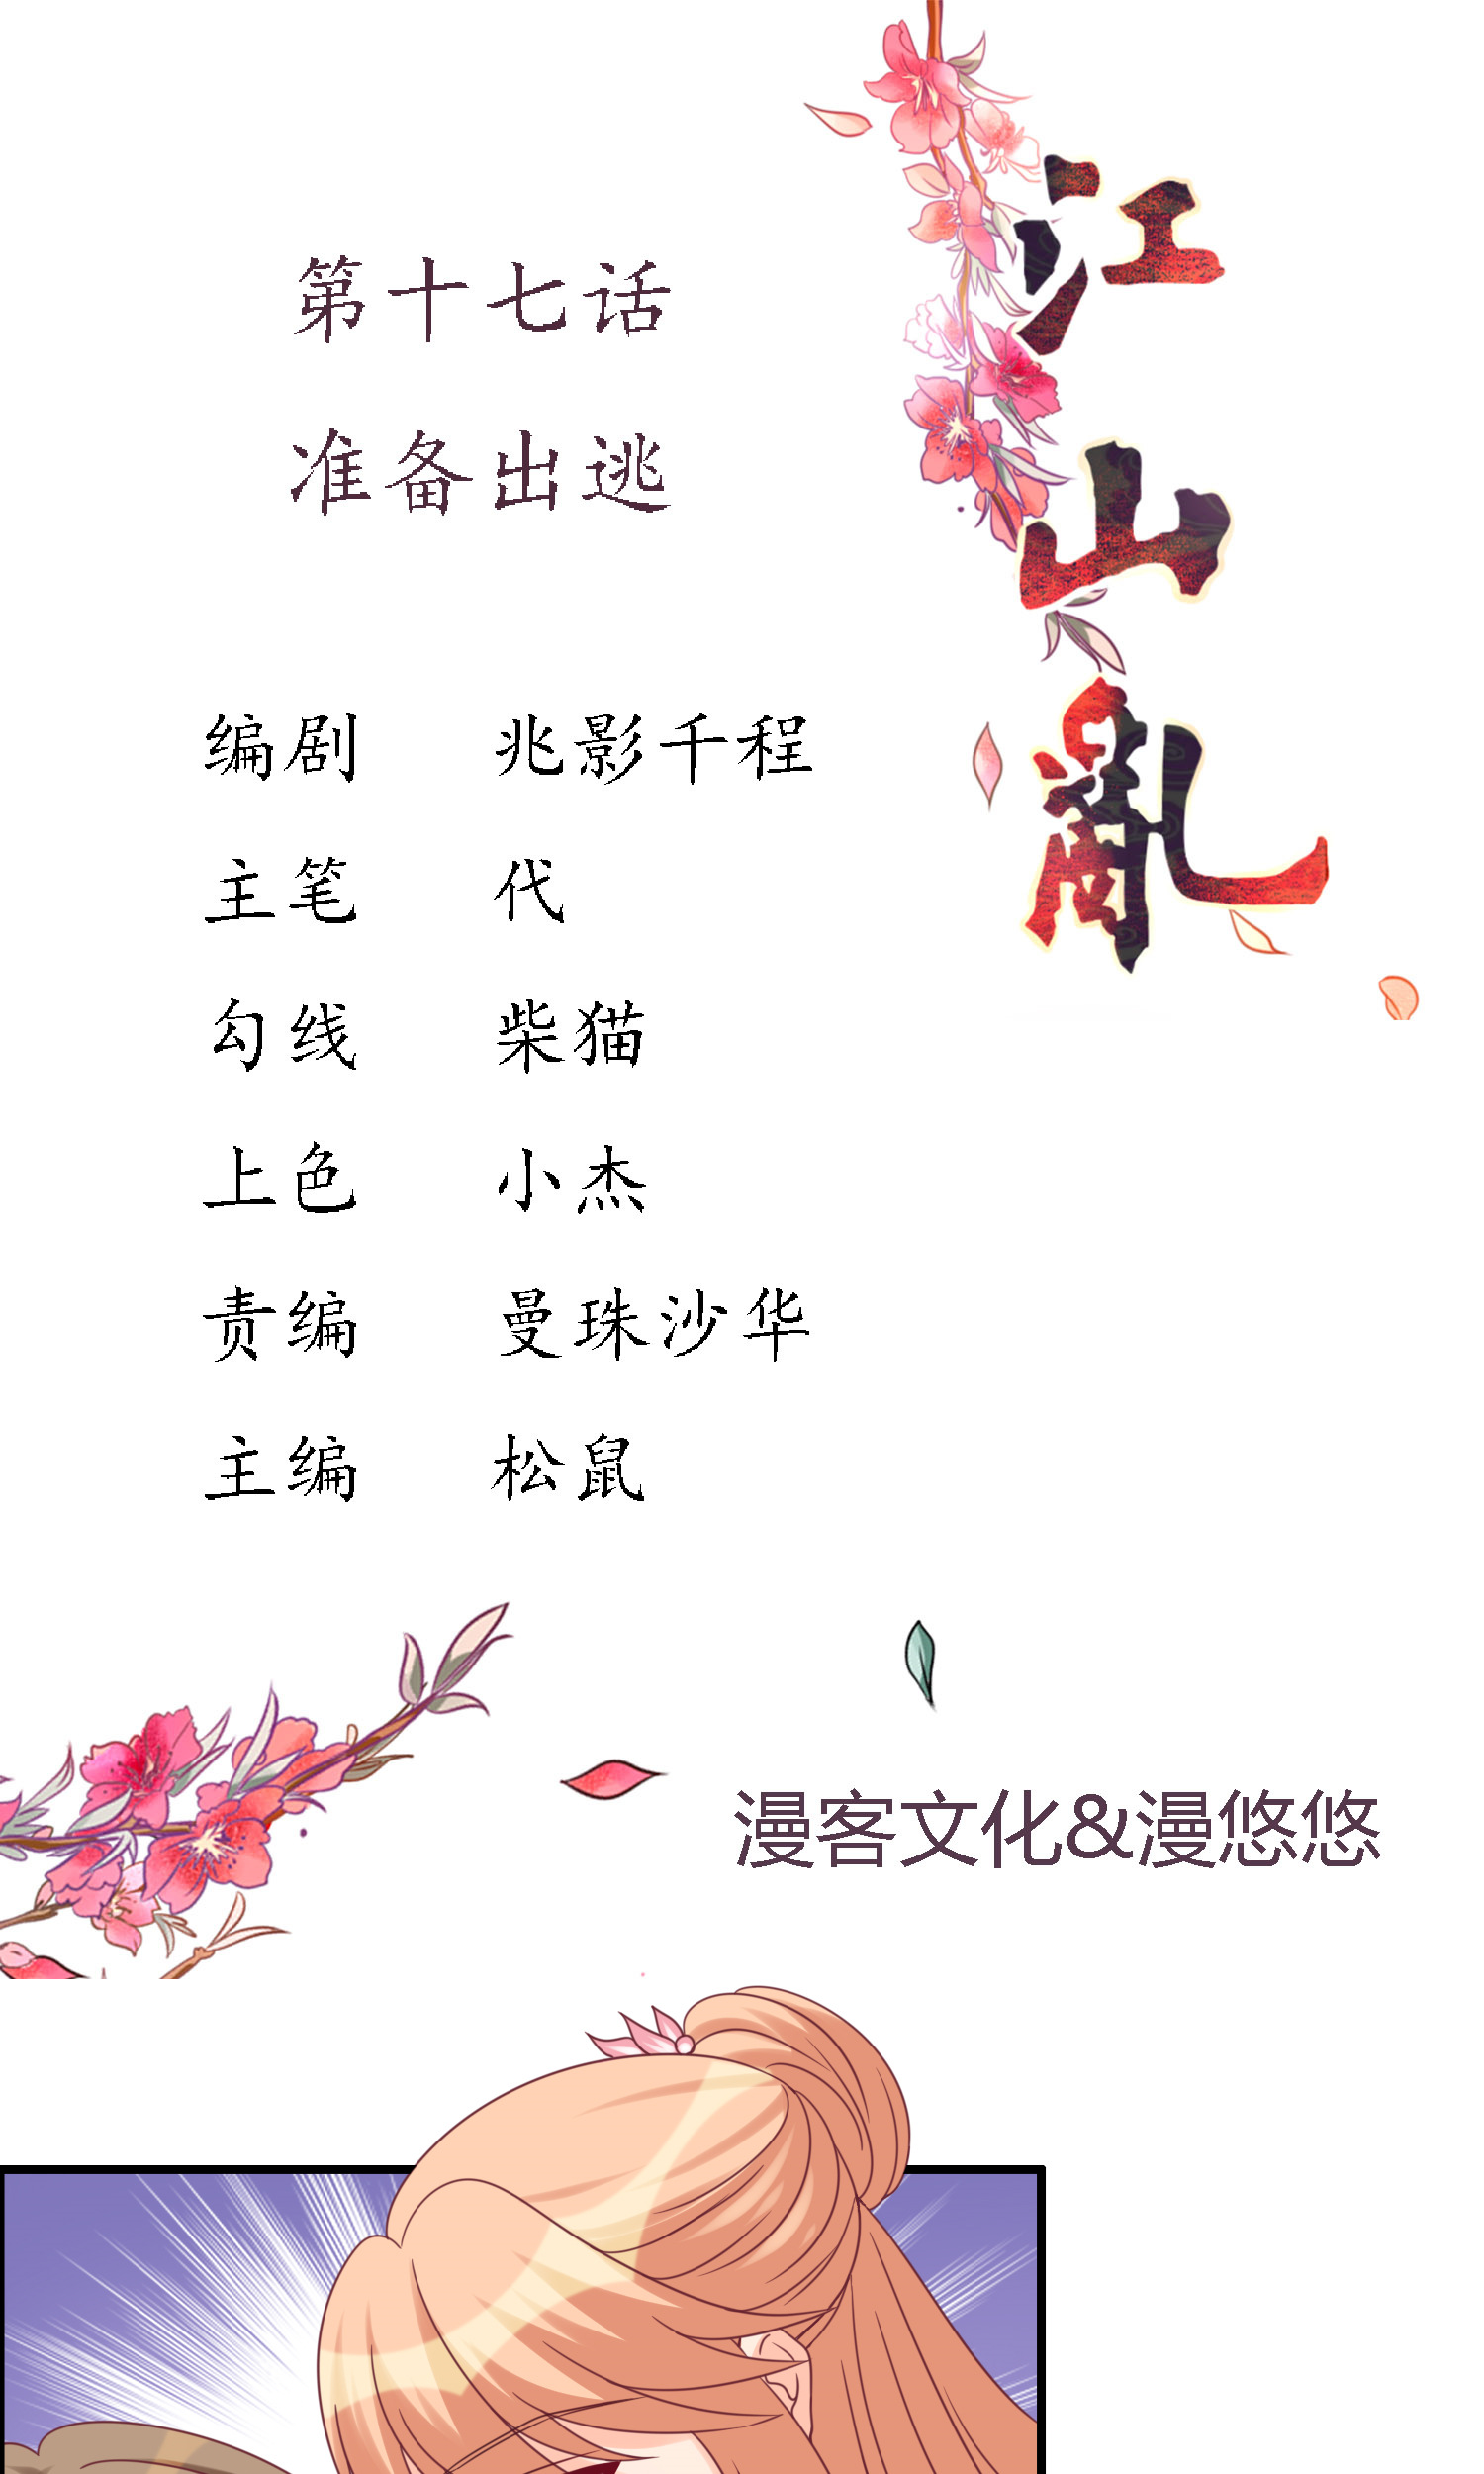 江山亂
第十七话
准备出逃
编剧 兆影千程
主笔 代
勾线 柴猫
上色 小杰
责编 曼珠沙华
主编 松鼠
漫客文化&漫悠悠